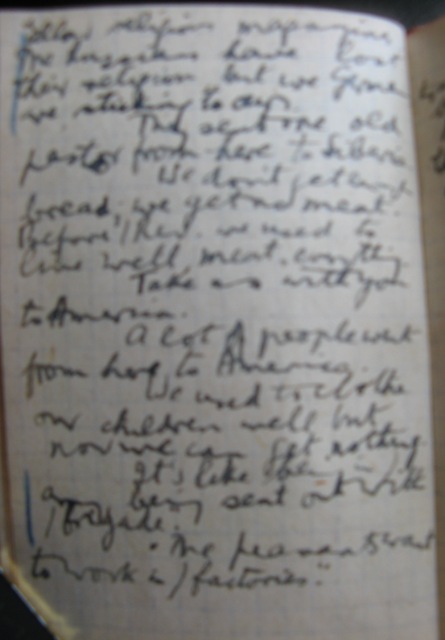 religion magazine
The Russians have lost
their religion but we German
are sticking to ours.
They sent one old
pastor from here to Siberia
We don't get enough
bread, we get no meat.
Before then we used to
live well, meat, everything
Take us with you
to America.
A lot of people went
from here to America.
We used to clothe
our children well but
now we can get nothing
It's like
being sent out with
/ brigade.
"The peasants want
to work in / factories."